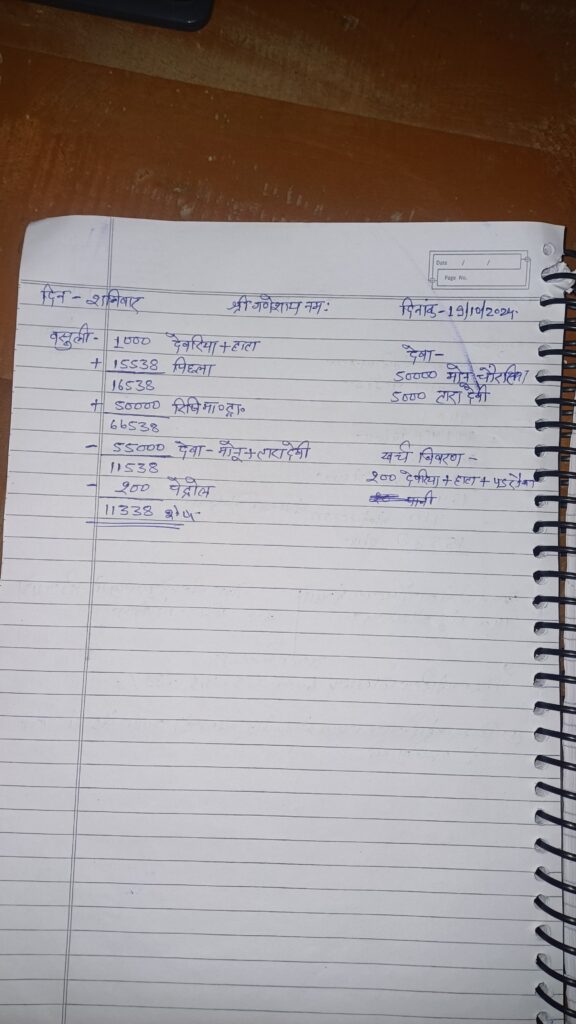 Date / /
Page No.
दिन - शनिवार श्री गणेशाय नमः दिनांक - 19/10/2024
वसुली - 1000 देवरिया + हाटा
+ 15538 पिछला
16538
+ 50000 रिषि मा० द्वा०
66538
- 55000 देवा - मोनू + तारा देवी
11538
- 200 पेट्रोल
11338 शेष
देवा -
50000 मोनू चौरसिया
5000 तारा देवी
खर्चा विवरण -
200 देवरिया + हाटा +
पानी